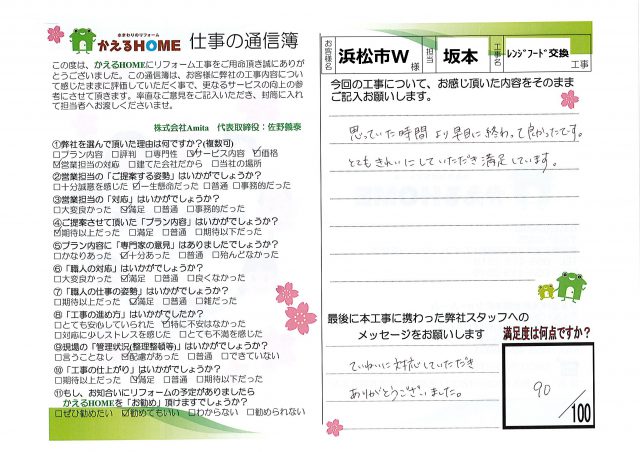 水まわりのリフォーム
かえるHOME 仕事の通信簿
この度は、かえるHOMEにリフォーム工事をご用命頂き誠にありが
とうございました。この通信簿は、お客様に弊社の工事内容につい
て感じたままに評価していただく事で、更なるサービスの向上の参
考にさせて頂きます。率直なご意見をご記入いただき、封筒に入れ
て担当者へお渡しくださいませ。
株式会社Amita 代表取締役：佐野義泰
①弊社を選んで頂いた理由は何ですか？(複数可)
□プラン内容 □評判 □専門性 ☑サービス内容 ☑価格
☑営業担当の対応 □建てた会社だから □当社の場所
②営業担当の「ご提案する姿勢」はいかがでしょうか？
□十分誠意を感じた ☑一生懸命だった □普通 □事務的だった
③営業担当の「対応」はいかがでしょうか？
□大変良かった ☑満足 □普通 □事務的だった
④ご提案させて頂いた「プラン内容」はいかがでしょうか？
☑期待以上だった □満足 □普通 □期待以下だった
⑤プラン内容に「専門家の意見」はありましたでしょうか？
□かなりあった ☑十分あった □普通 □殆んどなかった
⑥「職人の対応」はいかがでしょうか？
□大変良かった ☑満足 □普通 □良くなかった
⑦「職人の仕事の姿勢」はいかがでしょうか？
□期待以上だった ☑満足 □普通 □雑だった
⑧「工事の進め方」はいかがでしたか？
□とても安心していられた ☑特に不安はなかった
□対応に少しストレスを感じた □とても不満を感じた
⑨現場の「管理状況(整理整頓等)」はいかがでしょうか？
□言うことなし ☑配慮があった □普通 □できていない
⑩「工事の仕上がり」はいかがでしょうか？
□期待以上だった ☑満足 □普通 □期待以下だった
⑪もし、お知合いにリフォームの予定がありましたら
かえるHOMEを「お勧め」頂けますでしょうか？
□ぜひ勧めたい ☑勧めてもいい □わからない □勧められない
お客様名 浜松市W 様 担当 坂本 工事名 レンジフード交換 工事
今回の工事について、お感じ頂いた内容をそのまま
ご記入お願いします。
思っていた時間より早目に終わって良かったです。
とてもきれいにしていただき満足しています。
最後に本工事に携わった弊社スタッフへの
メッセージをお願いします
ていねいに対応していただき
ありがとうございました。
満足度は何点ですか？
90
/100